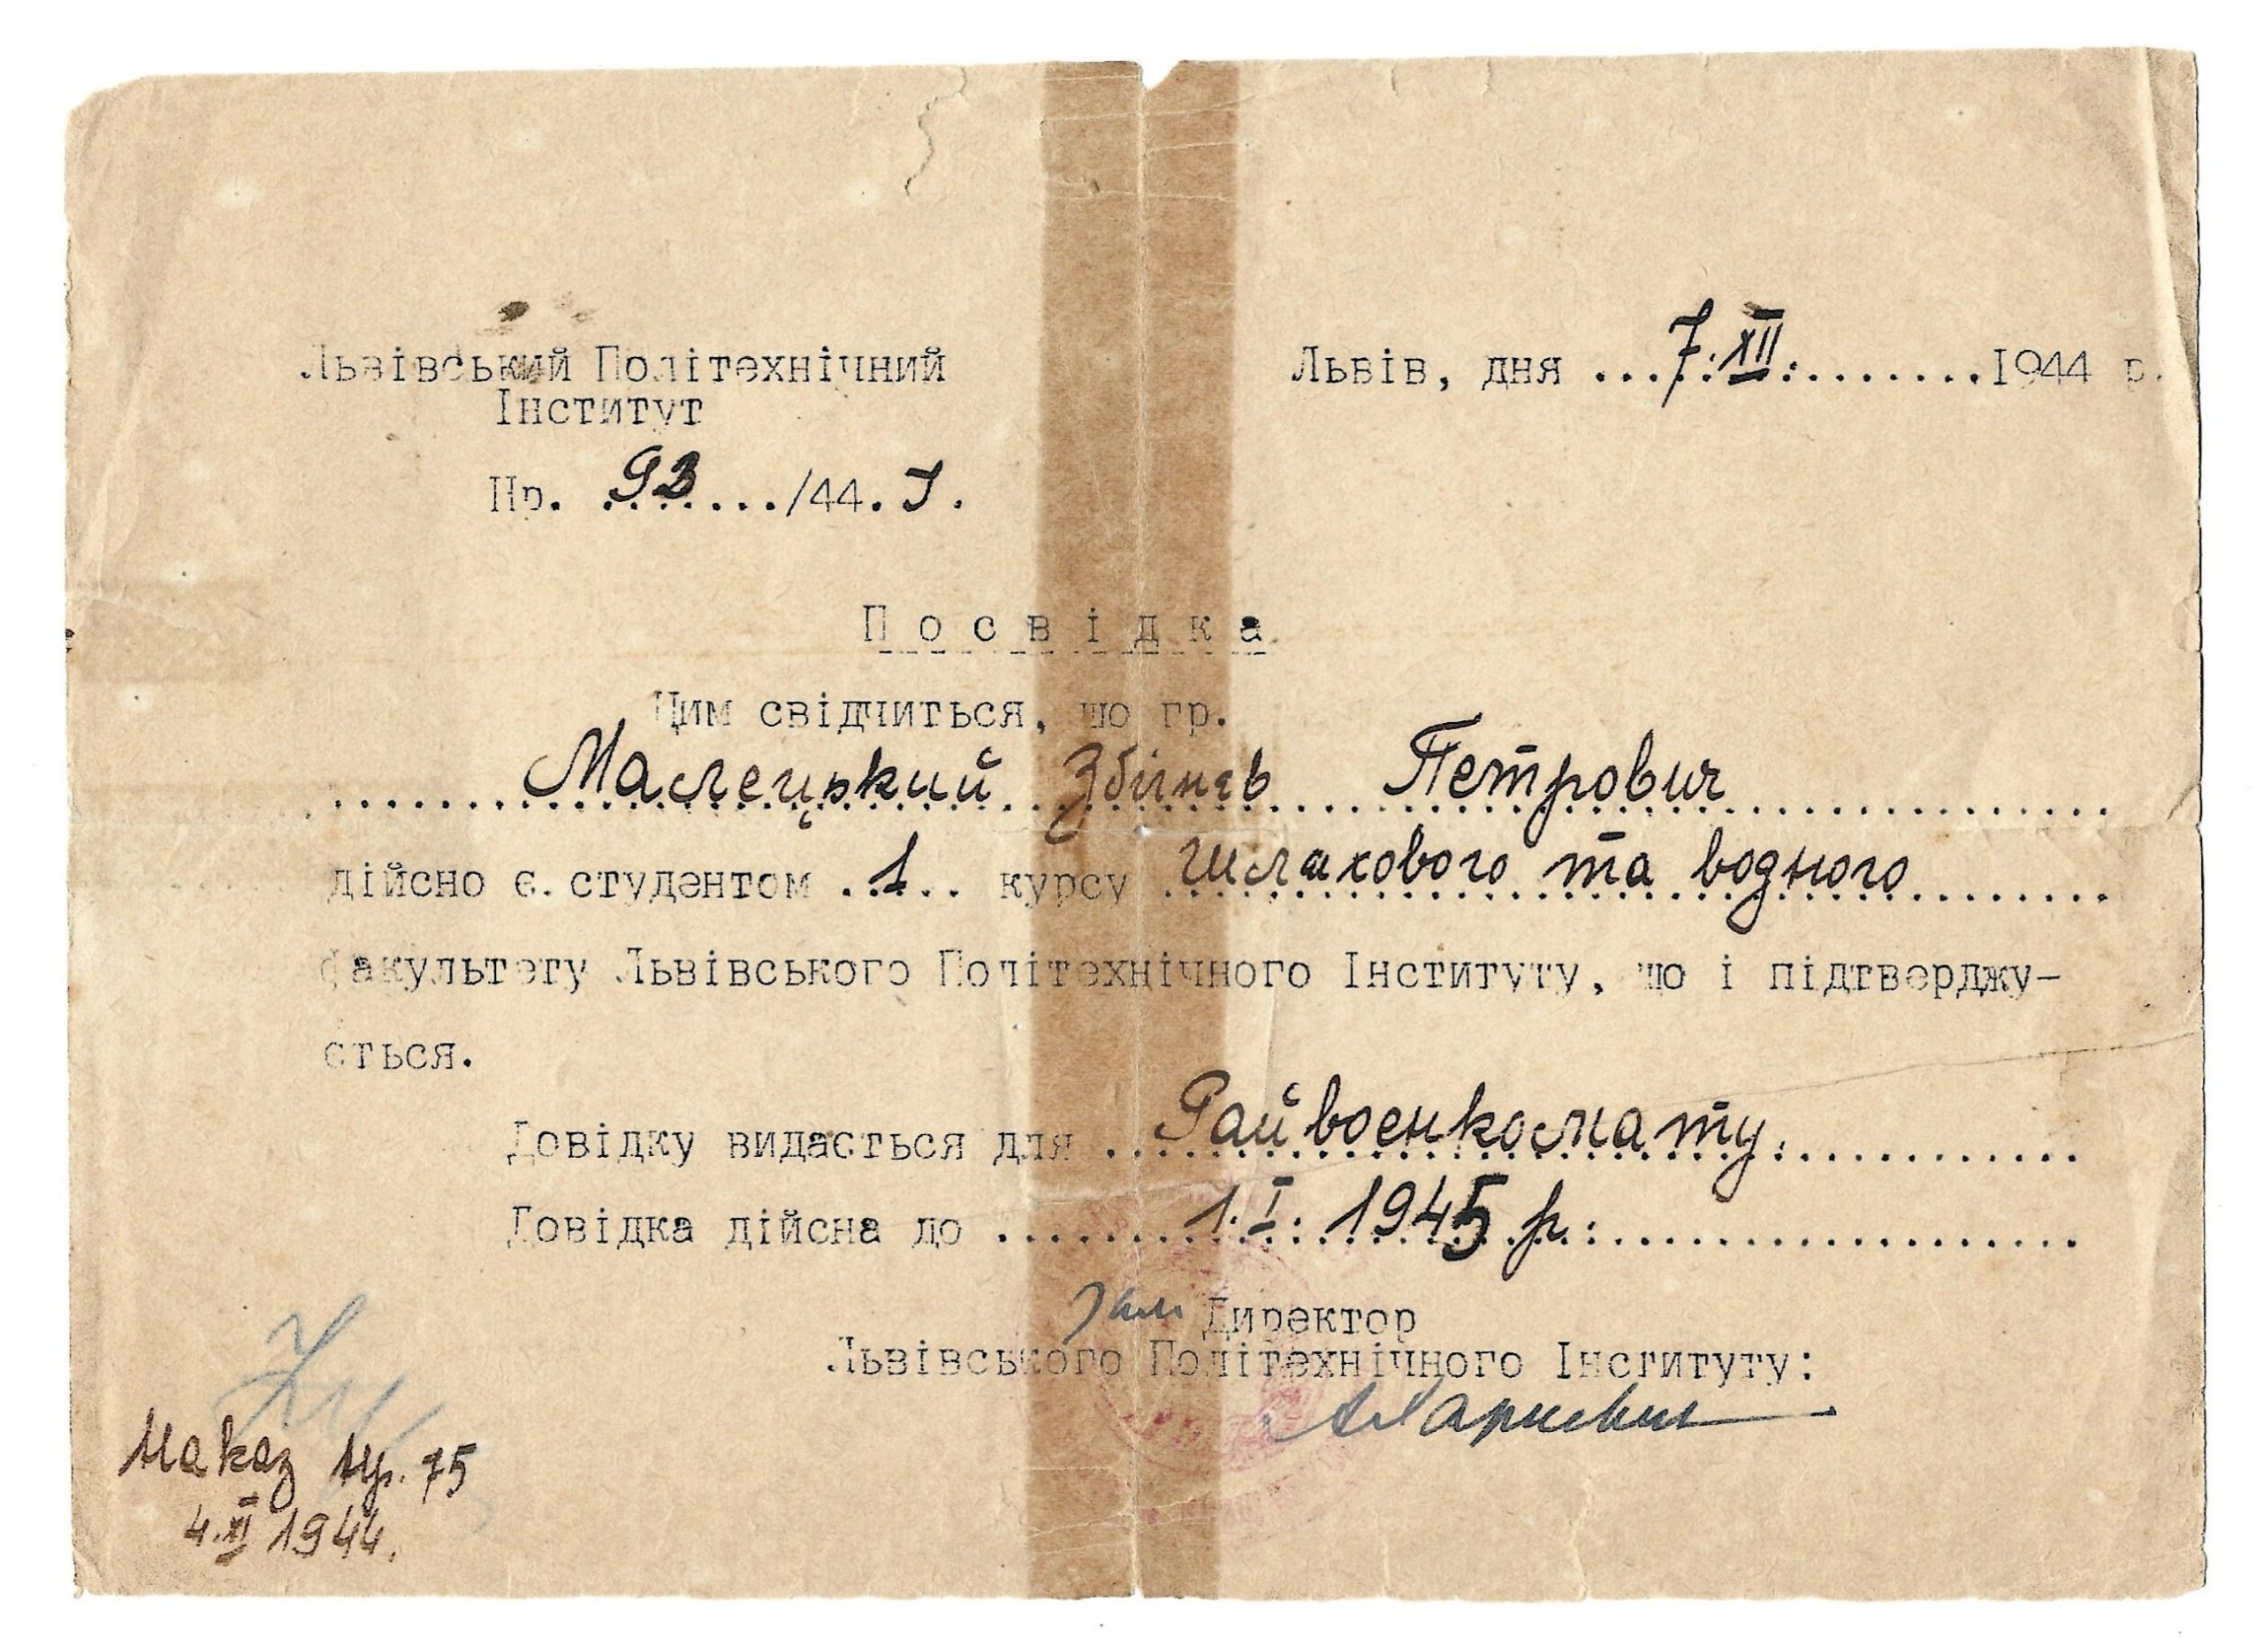 Львівський Політехнічний
Інститут
Львів, дня ...7.XII.........1944 р.
Нр. .93..../44.
П о с в і д к а
Цим свідчиться, що гр.
Малецький Збігнєв Петрович
дійсно є.студентом .1.. курсу Шляхового та водного
факультету Львівського Політехнічного Інституту, що і підтверджу-
ється.
Довідку видається для Райвоенкомату.
Довідка дійсна до 1.I. 1945 р.
Зам Директор
Львівського Політехнічного Інституту:
Наказ Нр. 75
4.XI 1944.